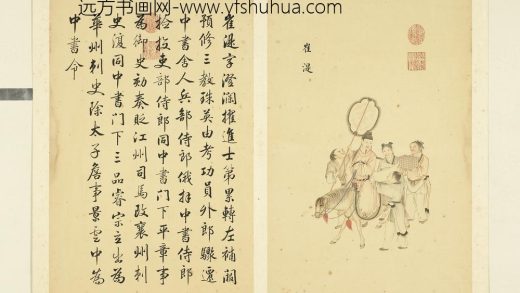 远方书画网-www.yfshuhua.com
崔湜
崔湜字澄瀾擢進士第累轉左補闕
預修三教珠英由考功員外郎驟遷
中書舍人兵部侍郎俄拜中書侍郎
檢校吏部侍郎同中書門下平章事
為御史劾奏貶江州司馬改襄州刺
史復同中書門下三品睿宗立出為
華州刺史除太子詹事景雲中為
中書令